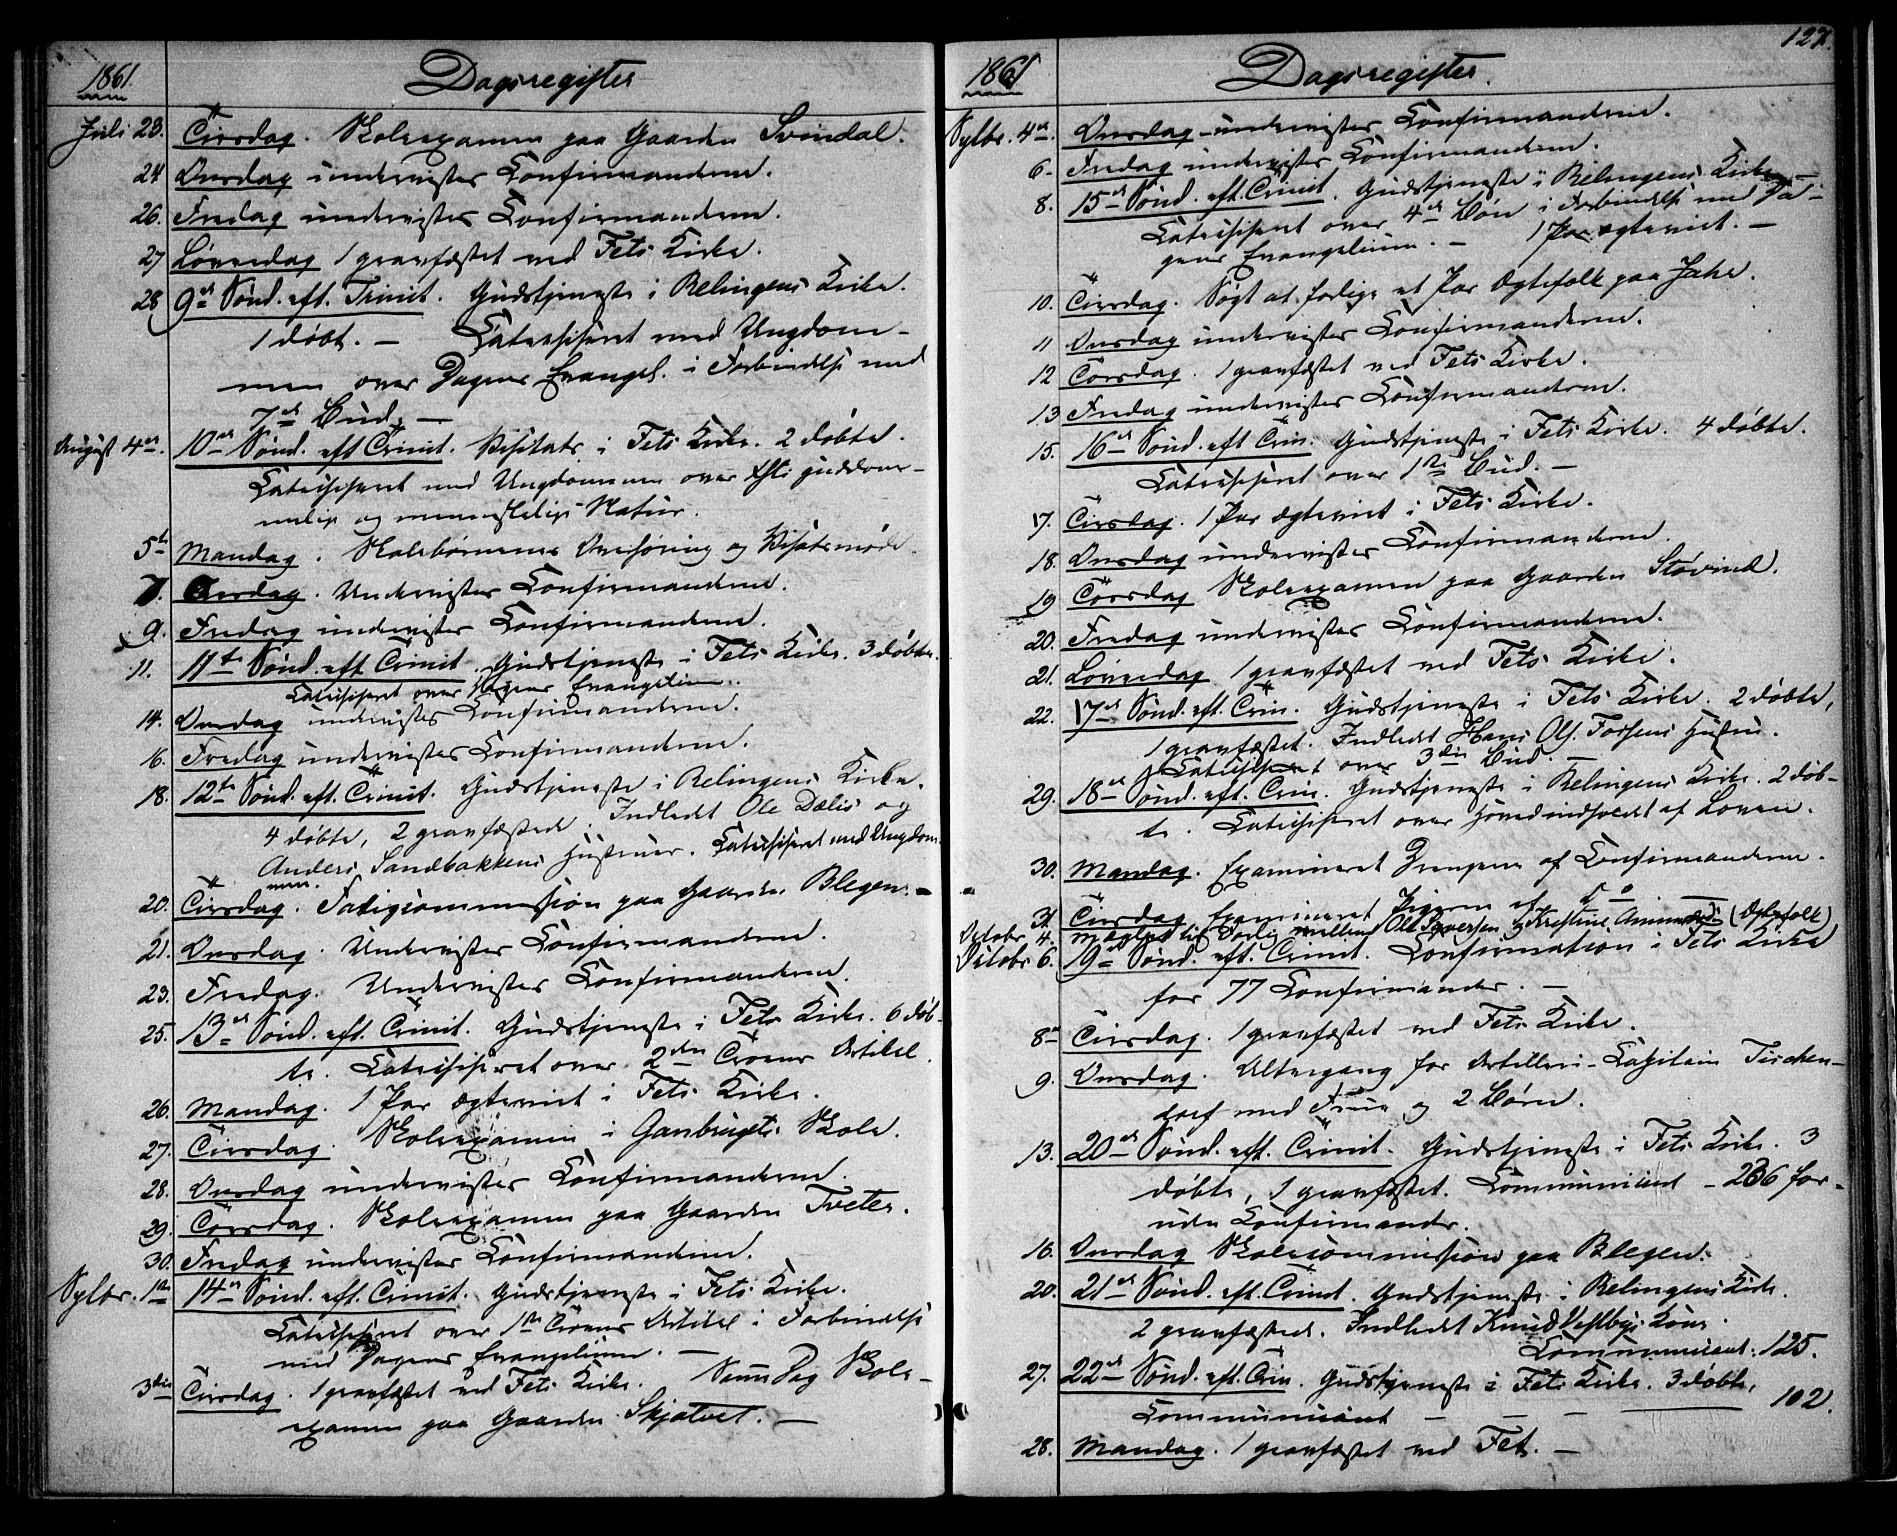 1861. Dagsregister
Juli 23. Tirsdag. Skoleexamen paa Gaarden Svindal.
24 Onsdag undervistes Confirmanderne.
26. Fredag undervistes Confirmanderne.
27 Løverdag 1 gravfæstet ved Fets Kirke.
28 9de Sønd. eft. Trinit. Gudstjeneste i Relingens Kirke.
1 døbt. — Catechiseret med Ungdom-
men over Dagens Evangel. i Forbindelse med
7de Bud. —
August 4de. 10de Sønd. eft Trinit. Visitats i Fets Kirke. 2 døbte.
Catechiseret med Ungdommen over Chsti guddom-
melige og menneskelige Natur.
5te Mandag. Skolebørnenes Overhøring og Visitatsmøde.
7. Onsdag. Undervistes Confirmanderne.
9. Fredag undervistes Confirmanderne.
11. 11te Sønd. eft Trinit. Gudstjeneste i Fets Kirke. 3 døbte.
Catechiseret over Dagens Evangelium.
14. Onsdag undervistes Confirmanderne.
16. Fredag undervistes Confirmanderne.
18. 12te Sønd. eft. Trinit. Gudstjeneste i Relingens Kirke.
4 døbte, 2 gravfæstede. Indledt Ole Dælis og
Anders Sandbakkens Hustruer. Catechiseret med Ungdom-
men.
20. Tirsdag. Fatigcommission paa Gaarden Blegen. —
21. Onsdag. Undervistes Confirmanderne.
23. Fredag. Undervistes Confirmanderne.
25. 13de Sønd. eft. Trinit. Gudstjeneste i Fets Kirke. 6 døb-
te. Catechiseret over 2den Troens Artikel.
26. Mandag. 1 Par ægteviet i Fets Kirke.
27. Tirsdag. Skoleexamen i Ganbrugets Skole.
28. Onsdag undervistes Confirmanderne.
29. Torsdag. Skoleexamen paa Gaarden Tveter.
30. Fredag undervistes Confirmanderne.
Sptbr. 1ste 14de Sønd. eft. Trinit. Gudstjeneste i Fets Kirke.
Catechiseret over 1ste Troens Artikel i Forbindelse
med Dagens Evangelium. —
3die Tirsdag. 1 gravfæstet ved Fets Kirke. Samme Dag Skole-
examen paa Gaarden Skjatvet. —
1861 Dagsregister. 127.
Sptbr. 4de. Onsdag undervistes Confirmanderne.
6. Fredag undervistes Confirmanderne.
8. 15de Sønd. eft. Trinit. Gudstjeneste i Relingens Kirke —
Catechiseret over 4de Bøn i Forbindelse med Da-
gens Evangelium. — 1 Par ægteviet. —
10. Tirsdag. Søgt at forlige et Par Ægtefolk paa Jahr.
11 Onsdag undervistes Confirmanderne.
12 Torsdag. 1 gravfæstet ved Fets Kirke.
13. Fredag undervistes Confirmanderne.
15. 16de Sønd. eft Trin. Gudstjeneste i Fets Kirke. 4 døbte.
Catechiseret over 1ste Bud. —
17. Tirsdag. 1 Par ægteviet i Fets Kirke.
18. Onsdag undervistes Confirmanderne.
19 Torsdag Skoleexamen paa Gaarden Støvind.
20. Fredag undervistes Confirmanderne.
21. Løverdag 1 gravfæstet ved Fets Kirke.
22. 17de Sønd. eft. Trin. Gudstjeneste i Fets Kirke. 2 døbte,
1 gravfæstet. Indledt Hans Ols. Fossens Hustru.
Catechiseret over 3die Bud. —
29. 18de Sønd. eft. Trin. Gudstjeneste i Relingens Kirke. 2 døb-
te. Catechiseret over Hovedindholdet af Loven.
30. Mandag. Examineret Drengene af Confirmanderne.
Tirsdag Examineret Pigerne af do —
Octobr. 4. Mæglet til Forlig mellem Ole Syversen og Kristine (Ægtefolk)
Octobr 6. 19de Sønd. eft. Trinit. Confirmation i Fets Kirke
for 77 Confirmander. —
8de Tirsdag. 1 gravfæstet ved Fets Kirke.
9. Onsdag. Altergang for Artilleri-Capitain Tischen-
dorf med Frue og 2 Børn.
13. 20de Sønd. eft. Trinit. Gudstjeneste i Fets Kirke. 3
døbte, 1 gravfæstet. Communicant — 236 for-
uden Confirmander.
16. Onsdag Skolecommission paa Blegen.
20. 21de Sønd. eft. Trinit. Gudstjeneste i Relingens Kirke.
2 gravfæstede. Indledt Knud Vestbys Kone.
Communicant: 125.
27. 22de Sønd. eft. Trin. Gudstjeneste i Fets Kirke. 3 døbte,
Communicant — — — 102.
28. Mandag. 1 gravfæstet ved Fet. —